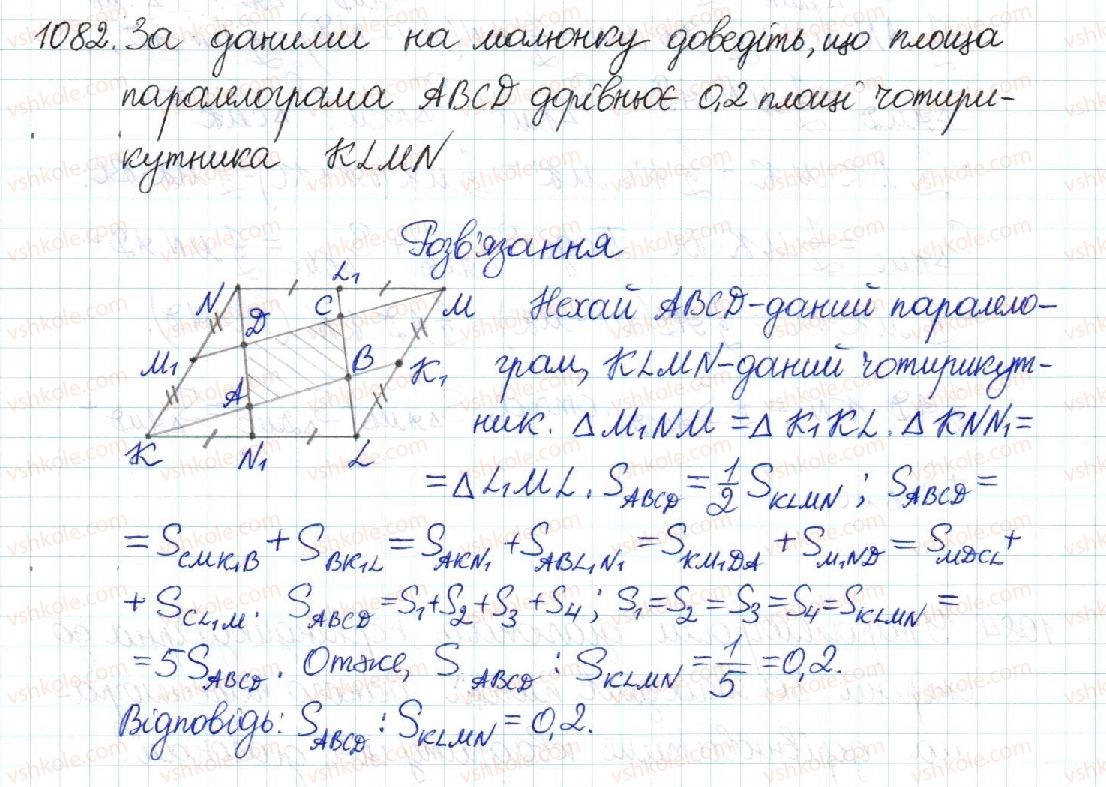 1082. За даними на малюнку доведіть, що площа
паралелограма ABCD дорівнює 0,2 площі чотири-
кутника KLMN
Розв'язання
N L₁ M
D C
M₁ B K₁
A
K N₁ L
Нехай ABCD-даний парало-
грам, KLMN-даний чотирикут-
ник. △M₁NM = △K₁KL. △KNN₁ =
= △L₁ML. S_ABCD = 1/2 S_KLMN ; S_ABCD =
= S_CMK₁B + S_BK₁L = S_AKN₁ + S_ABL₁N₁ = S_KM₁DA + S_M₁ND = S_MDCL +
+ S_CL₁M. S_ABCD = S₁+S₂+S₃+S₄; S₁=S₂=S₃=S₄=S_KLMN =
= 5S_ABCD. Отже, S_ABCD : S_KLMN = 1/5 = 0,2.
Відповідь: S_ABCD : S_KLMN = 0,2.
vshkole.com